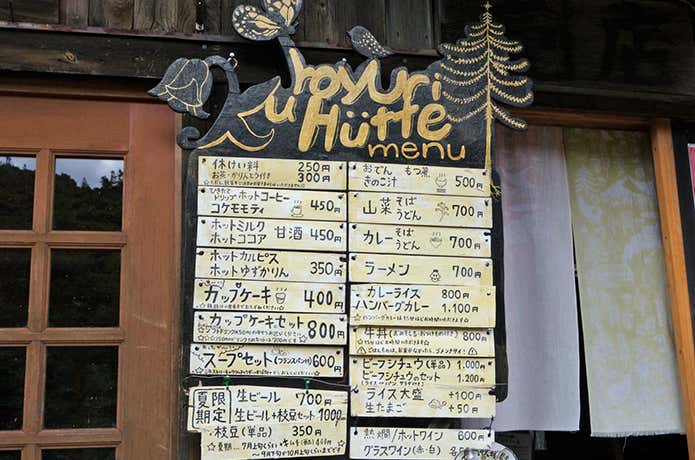 koyuri
Hütte
menu
休けい料 250円
お茶・かりんとう付き 300円
ひきたて
ドリップ ホットコーヒー
コケモモティ 450円
ホットミルク
ホットココア 甘酒 450円
ホットカルピス
ホットゆずかりん 350円
カップケーキ 400円
カップケーキセット 800円
スープセット(フランスパン付) 600円
夏限
期定
生ビール ¥700
生ビール+枝豆セット 1000
枝豆(単品) 350円
おでん もつ煮
きのこ汁 500円
山菜 そば
うどん 700円
カレー そば
うどん 700円
ラーメン 700円
カレーライス 800円
ハンバーグカレー 1.100円
牛丼 800円
ビーフシチュウ(単品) 1.000円
ビーフシチュウのセット 1.200円
ライス大盛 +100円
生たまご +50円
熱燗/ホットワイン 600円
グラスワイン(赤・白)